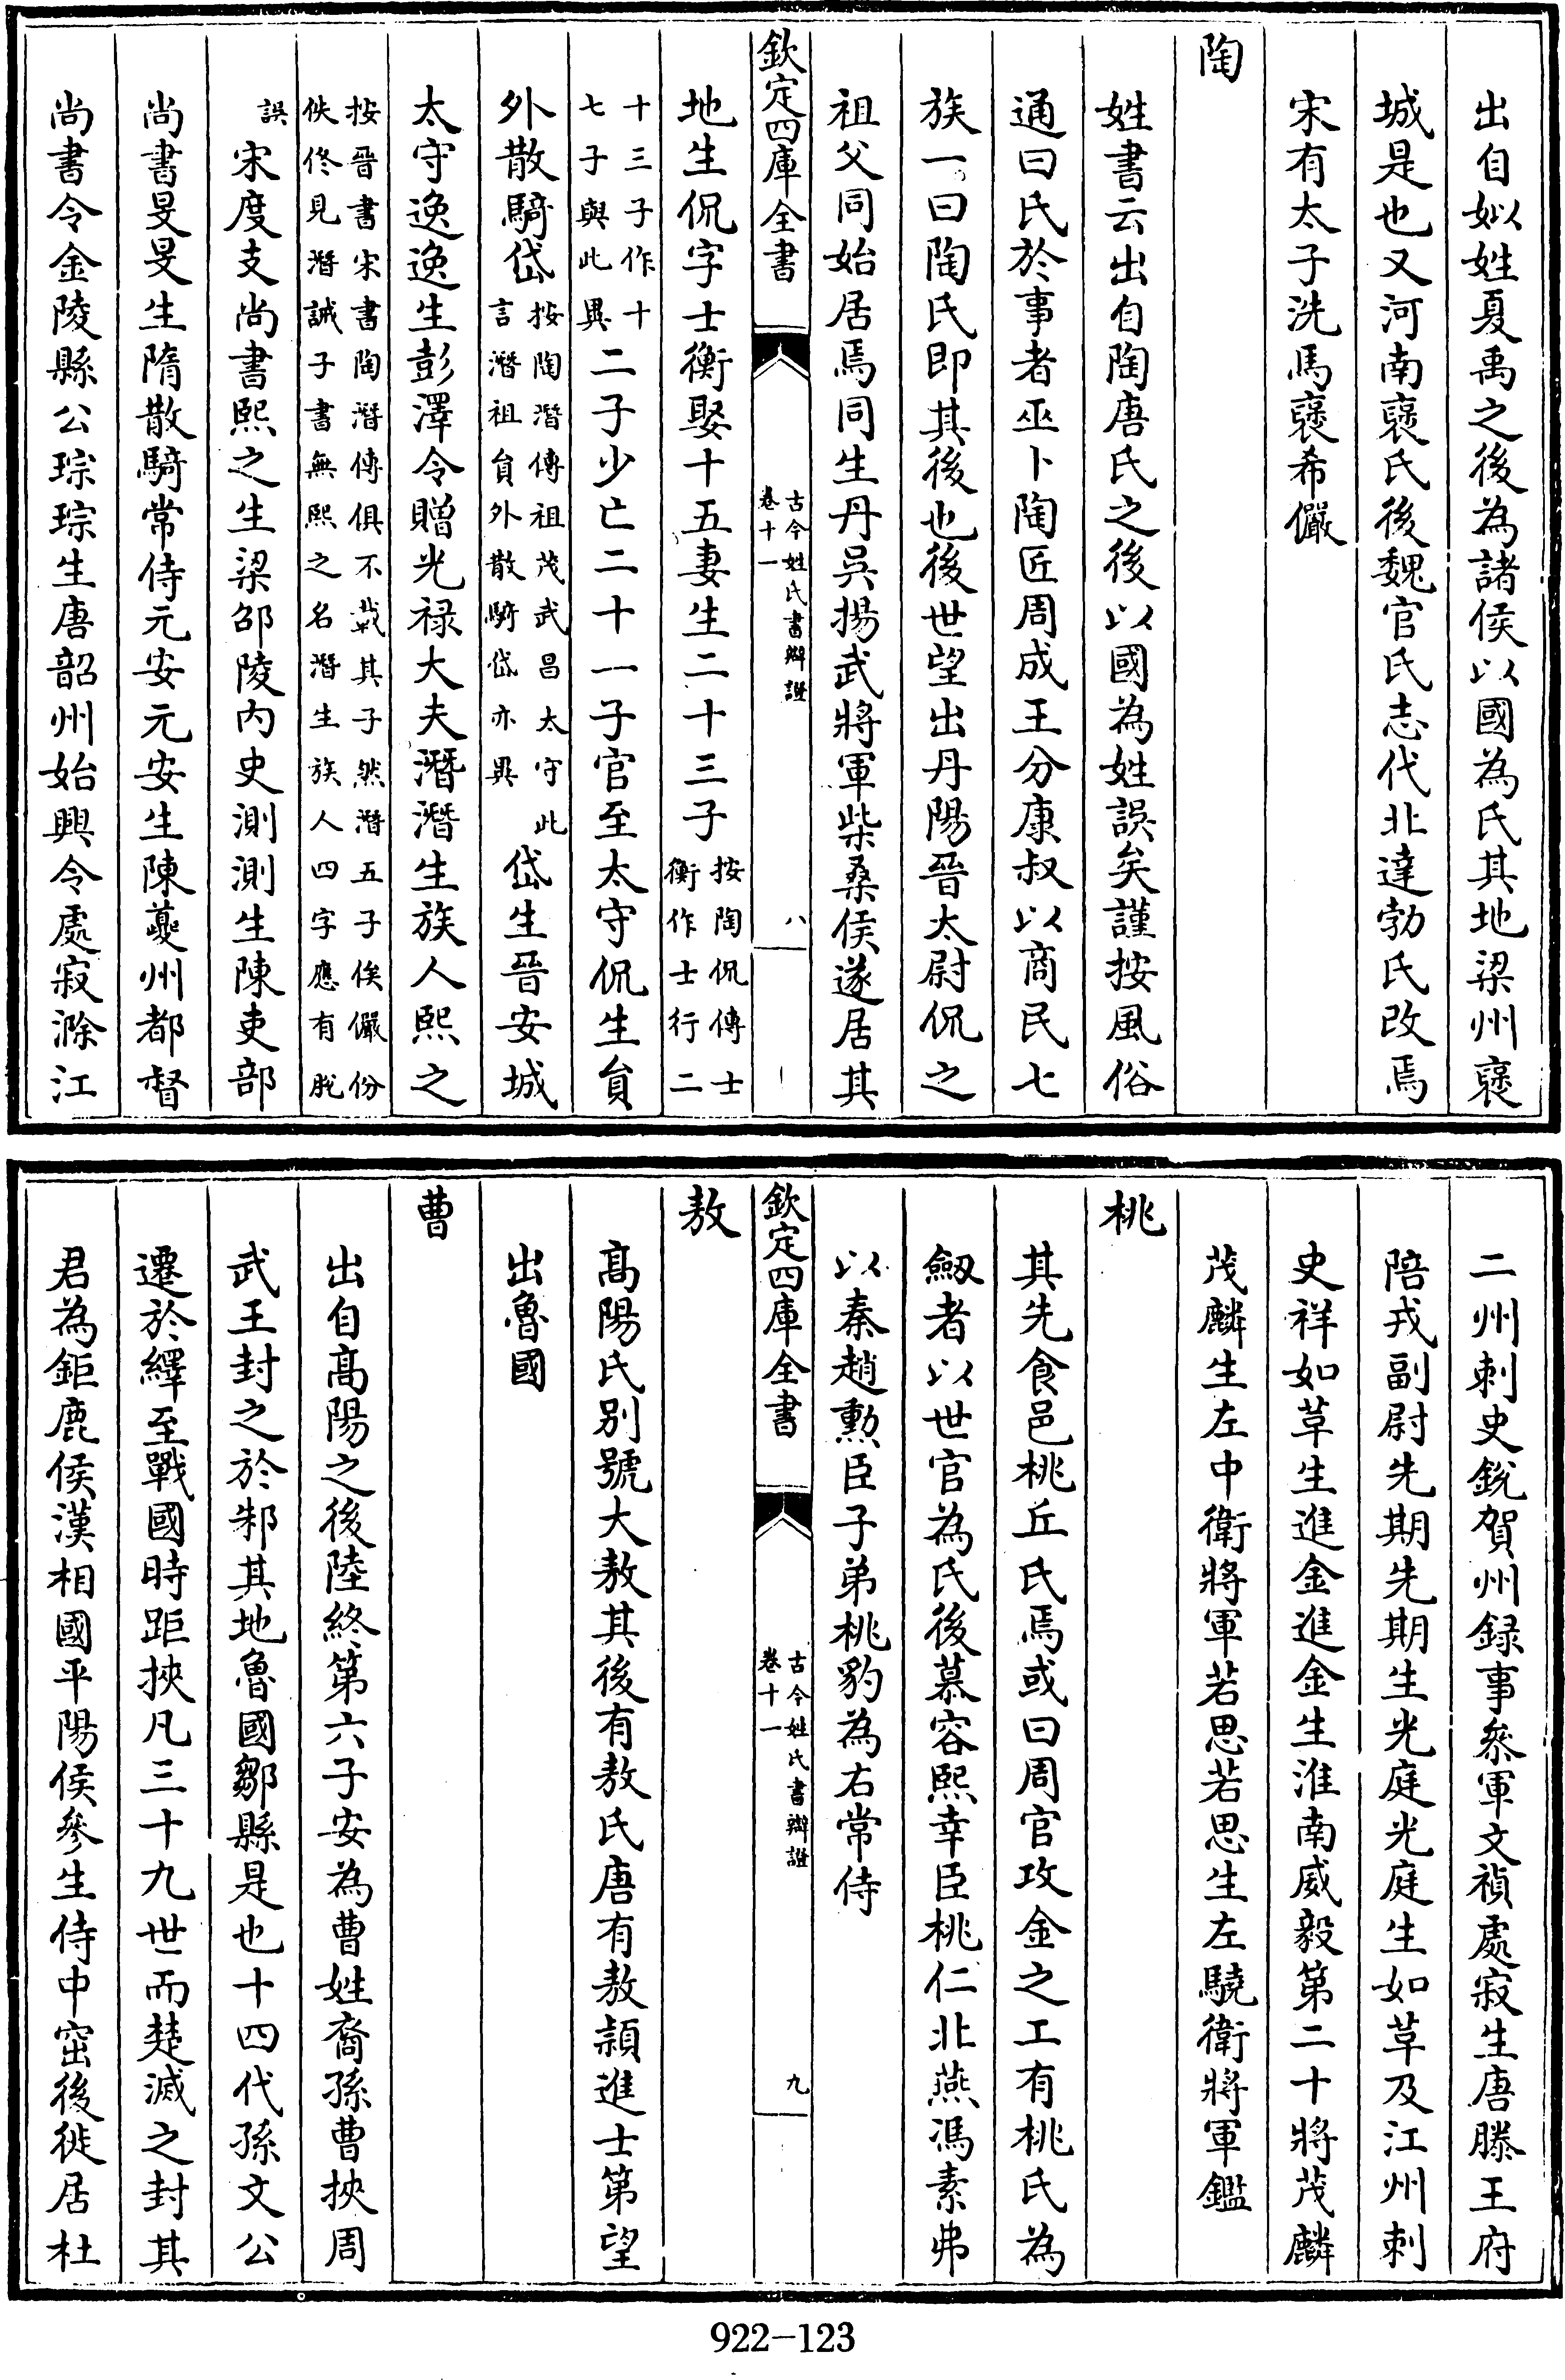 出自姒姓夏禹之後為諸侯以國為氏其地梁州褒
城是也又河南褒氏後魏官氏志代北達勃氏改焉
宋有太子洗馬褒希儼
陶
姓書云出自陶唐氏之後以國為姓誤矣謹按風俗
通曰氏於事者巫卜陶匠周成王分康叔以商民七
族一曰陶氏即其後也後世望出丹陽晉太尉侃之
祖父同始居焉同生丹吳揚武將軍柴桑侯遂居其
欽定四庫全書
古今姓氏書辯證
卷十一
八
地生侃字士衡娶十五妻生二十三子按陶侃傳士
衡作士行二
十三子作十
七子與此異二子少亡二十一子官至太守侃生員
外散騎岱按陶潛傳祖茂武昌太守此
言潛祖員外散騎岱亦異岱生晉安城
太守逸逸生彭澤令贈光祿大夫潛潛生族人熙之
按晉書宋書陶潛傳俱不載其子然潛五子俟儼份
佚佟見潛誡子書無熙之名潛生族人四字應有脫
誤宋度支尚書熙之生梁邵陵內史測測生陳吏部
尚書旻旻生隋散騎常侍元安元安生陳夔州都督
尚書令金陵縣公琮琮生唐韶州始興令處寂滁江
二州刺史銳賀州録事叅軍文禎處寂生唐滕王府
陪戎副尉先期先期生光庭光庭生如草及江州刺
史祥如草生進金進金生淮南威毅第二十將茂麟
茂麟生左中衛將軍若思若思生左驍衛將軍鑑
桃
其先食邑桃丘氏焉或曰周官攻金之工有桃氏為
劔者以世官為氏後慕容熙幸臣桃仁北燕馮素弗
以秦趙勲臣子弟桃豹為右常侍
欽定四庫全書
古今姓氏書辯證
卷十一
九
敖
髙陽氏别號大敖其後有敖氏唐有敖潁進士第望
出魯國
曹
出自髙陽之後陸終第六子安為曹姓裔孫曹挾周
武王封之於邾其地魯國鄒縣是也十四代孫文公
遷於繹至戰國時距挾凡三十九世而楚滅之封其
君為鉅鹿侯漢相國平陽侯參生侍中窋後徙居杜
922-123